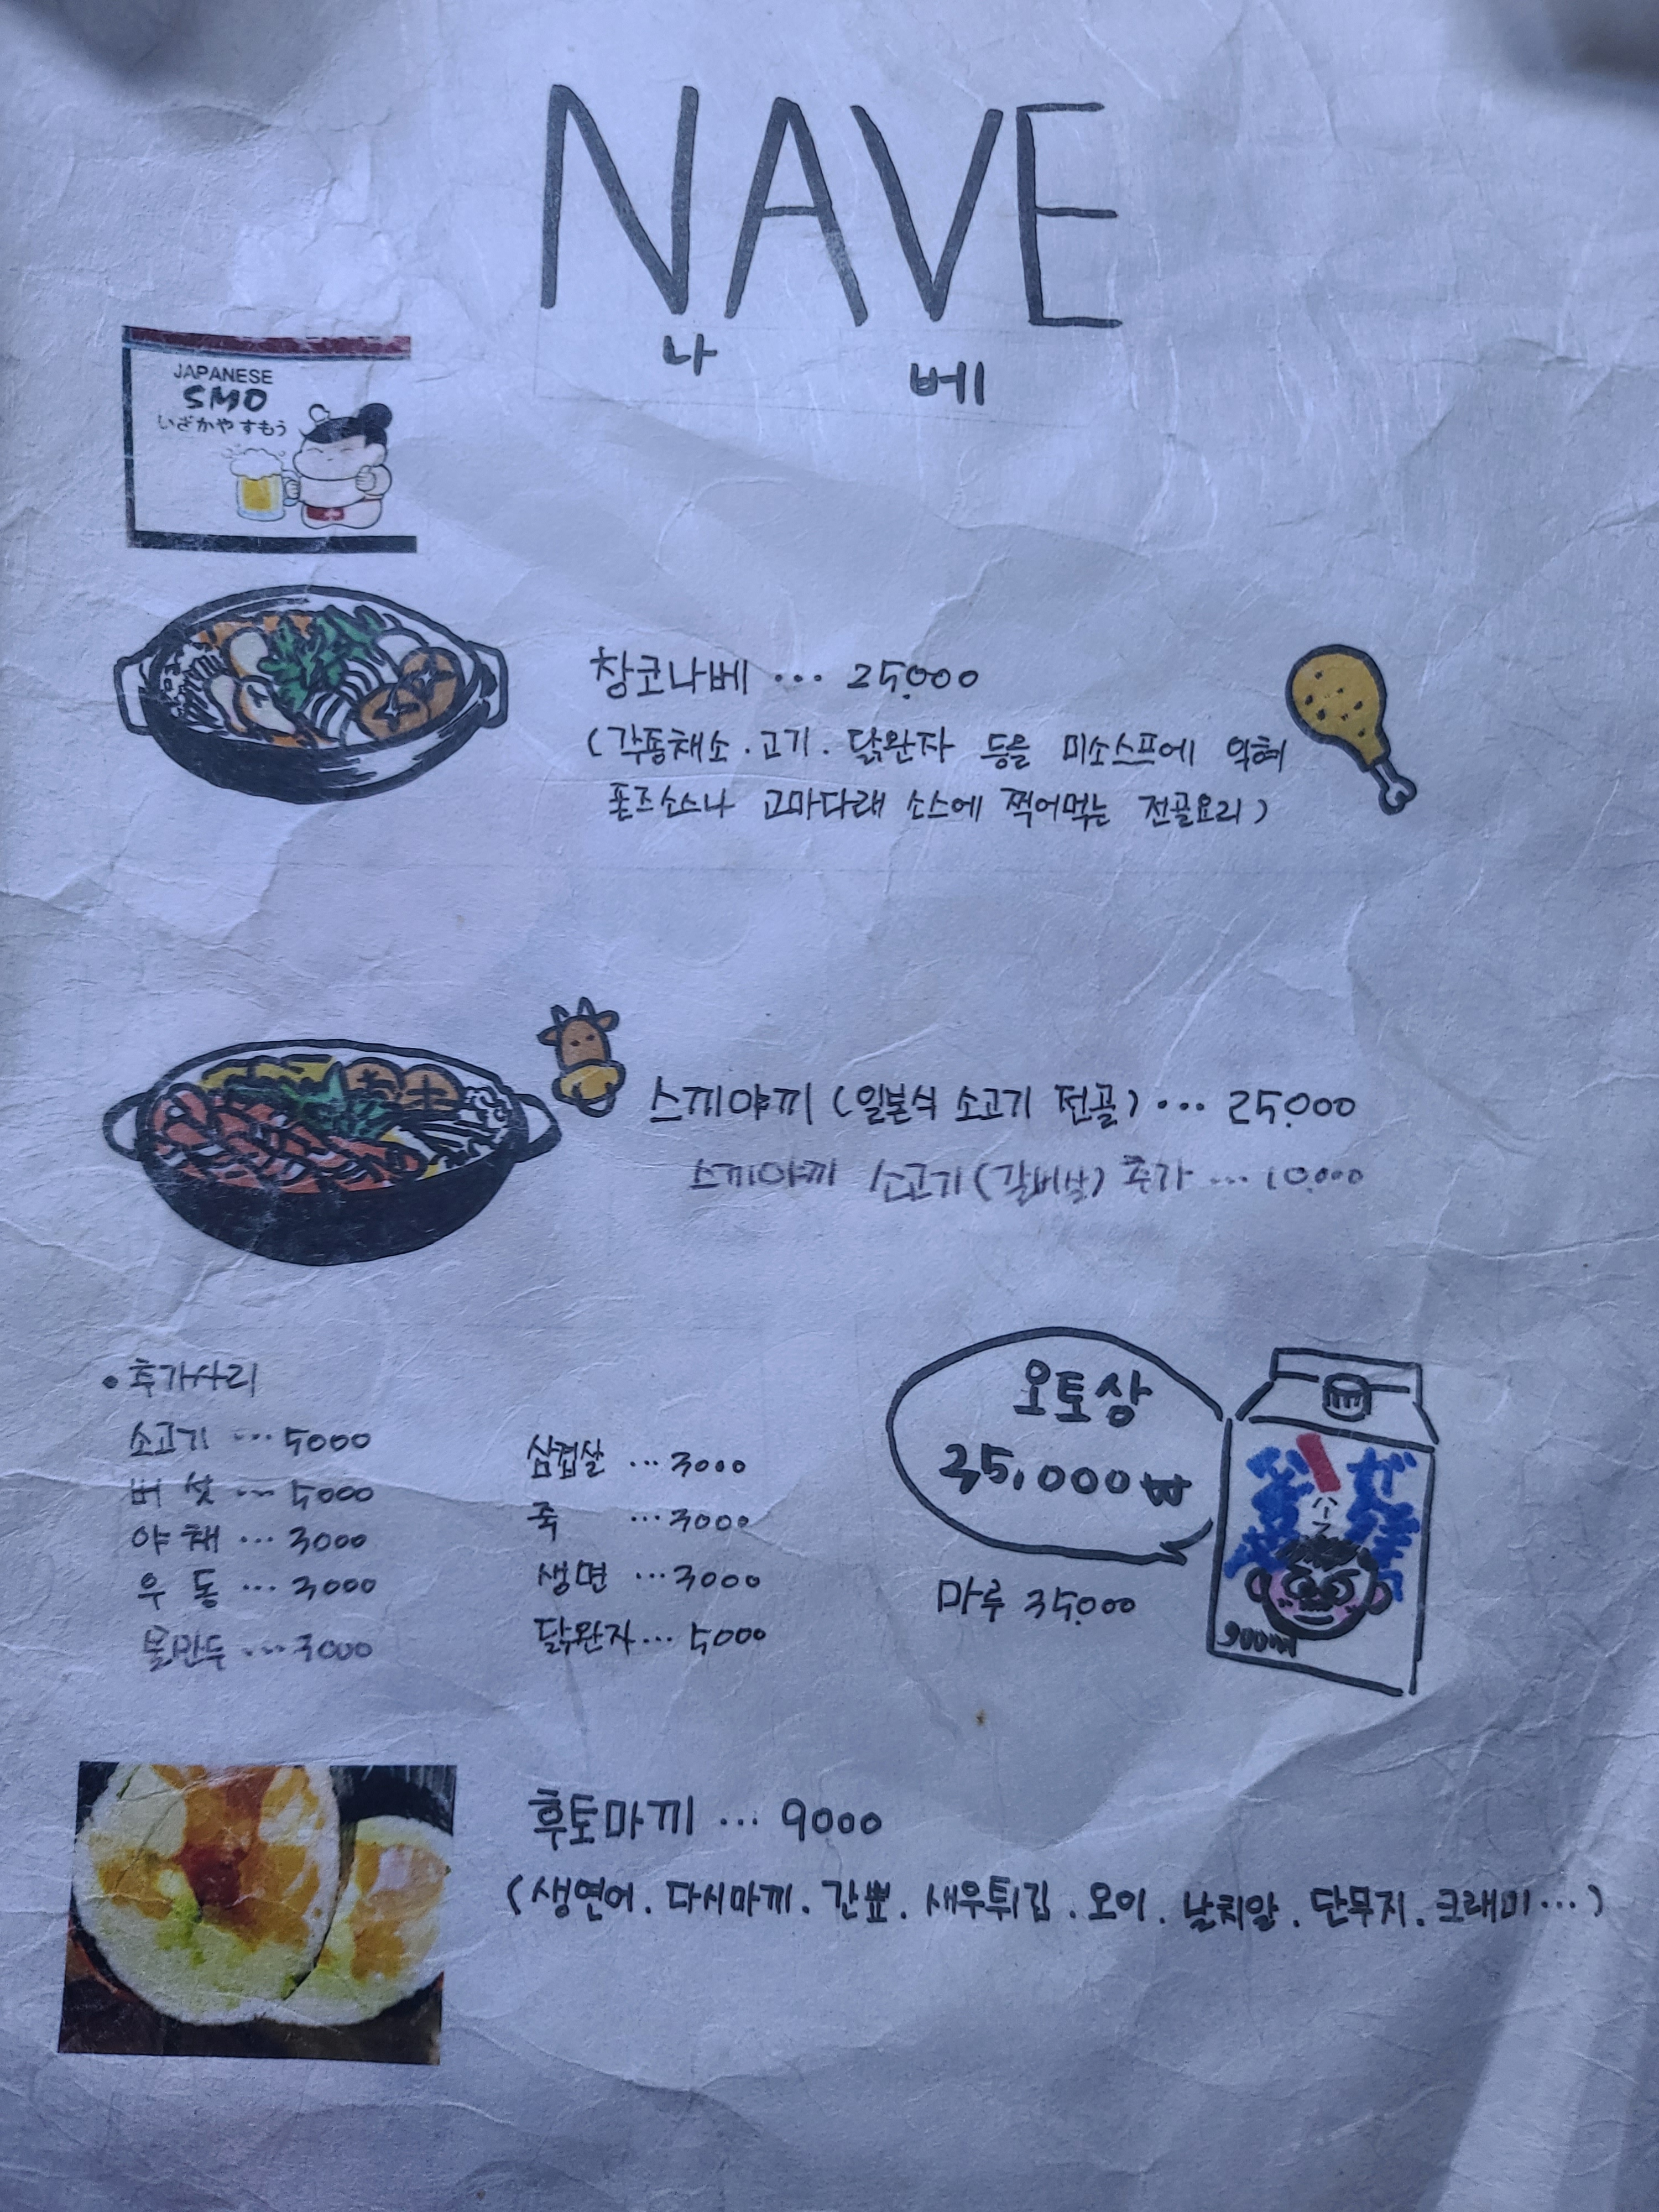 NAVE
나 베
JAPANESE
SMO
いざかや すもう
창코나베 ··· 25,000
(각종채소 . 고기 . 닭완자 등을 미소스프에 익혀
폰즈소스나 고마다래 소스에 찍어먹는 전골요리)
스끼야끼 (일본식 소고기 전골) ··· 25,000
스끼야끼 소고기(갈비살) 추가 ··· 10,000
• 추가사리
소고기 ··· 5000
버섯 ··· 5000
야채 ··· 3000
우동 ··· 3000
물만두 ··· 3000
삼겹살 ··· 3000
죽 ··· 3000
생면 ··· 3000
닭완자 ··· 5000
오토상
35,000₩
마루 35,000
900ml
후토마끼 ··· 9000
(생연어 . 다시마끼 . 간뾰 . 새우튀김 . 오이 . 날치알 . 단무지 . 크래미 ···)